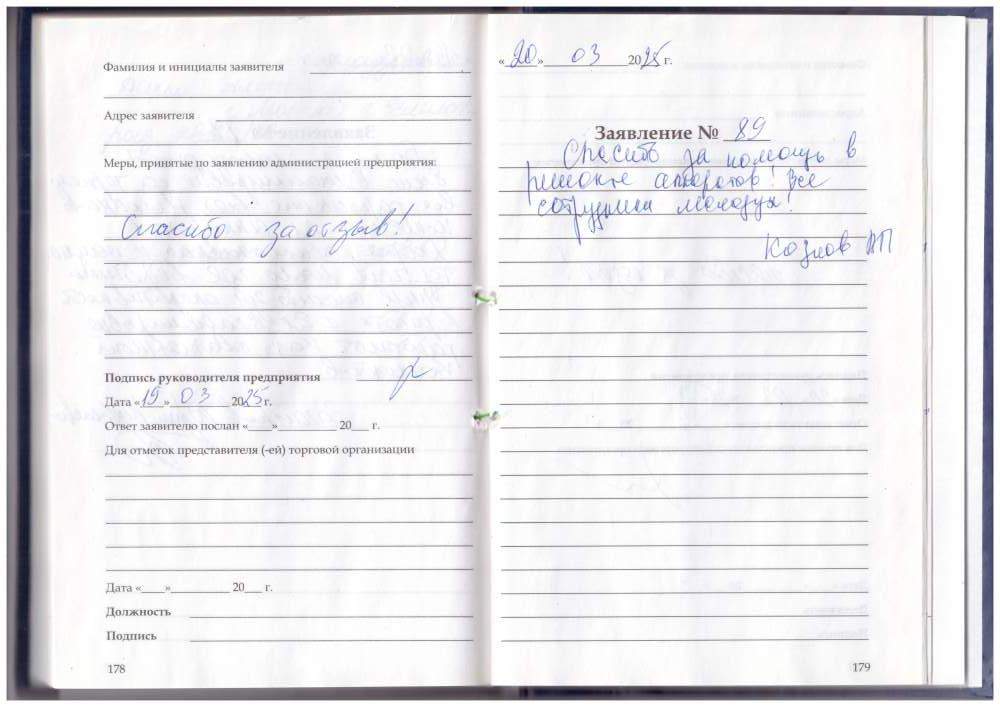 Фамилия и инициалы заявителя
Адрес заявителя
Меры, принятые по заявлению администрацией предприятия:
Спасибо за отзыв!
Подпись руководителя предприятия
Дата «19» 03 2025 г.
Ответ заявителю послан «___»__________ 20___ г.
Для отметок представителя (-ей) торговой организации
Дата «____»__________ 20___ г.
Должность
Подпись
178
«20» 03 2025 г.
Заявление № 89
Спасибо за помощь в
ремонте аппаратов! Все
сотрудники молодцы!
Козлов
179